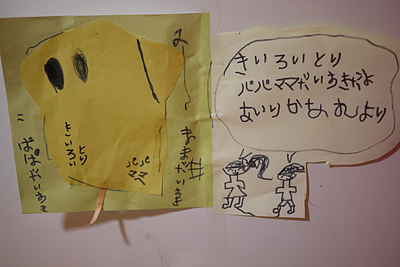 きいろいとり
パパママだいすきだよ
あいりかなれより
きいろい
とり
パパ
ママ
ままだいすき
ぱぱだいすき